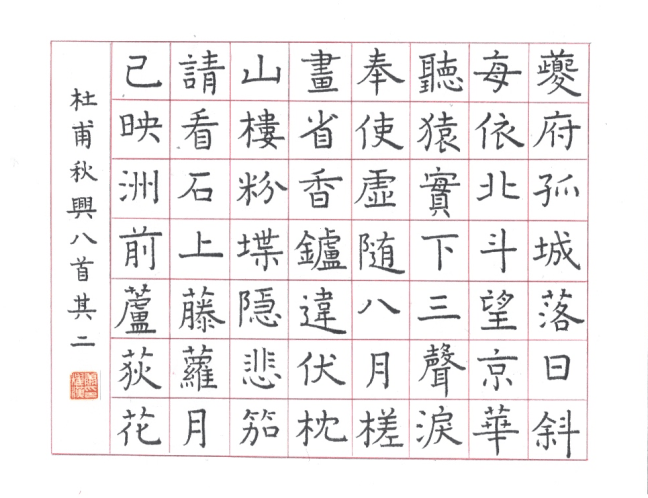 夔府孤城落日斜
每依北斗望京華
聽猿實下三聲淚
奉使虛隨八月槎
畫省香鑪違伏枕
山樓粉堞隱悲笳
請看石上藤蘿月
已映洲前蘆荻花
杜甫秋興八首其二